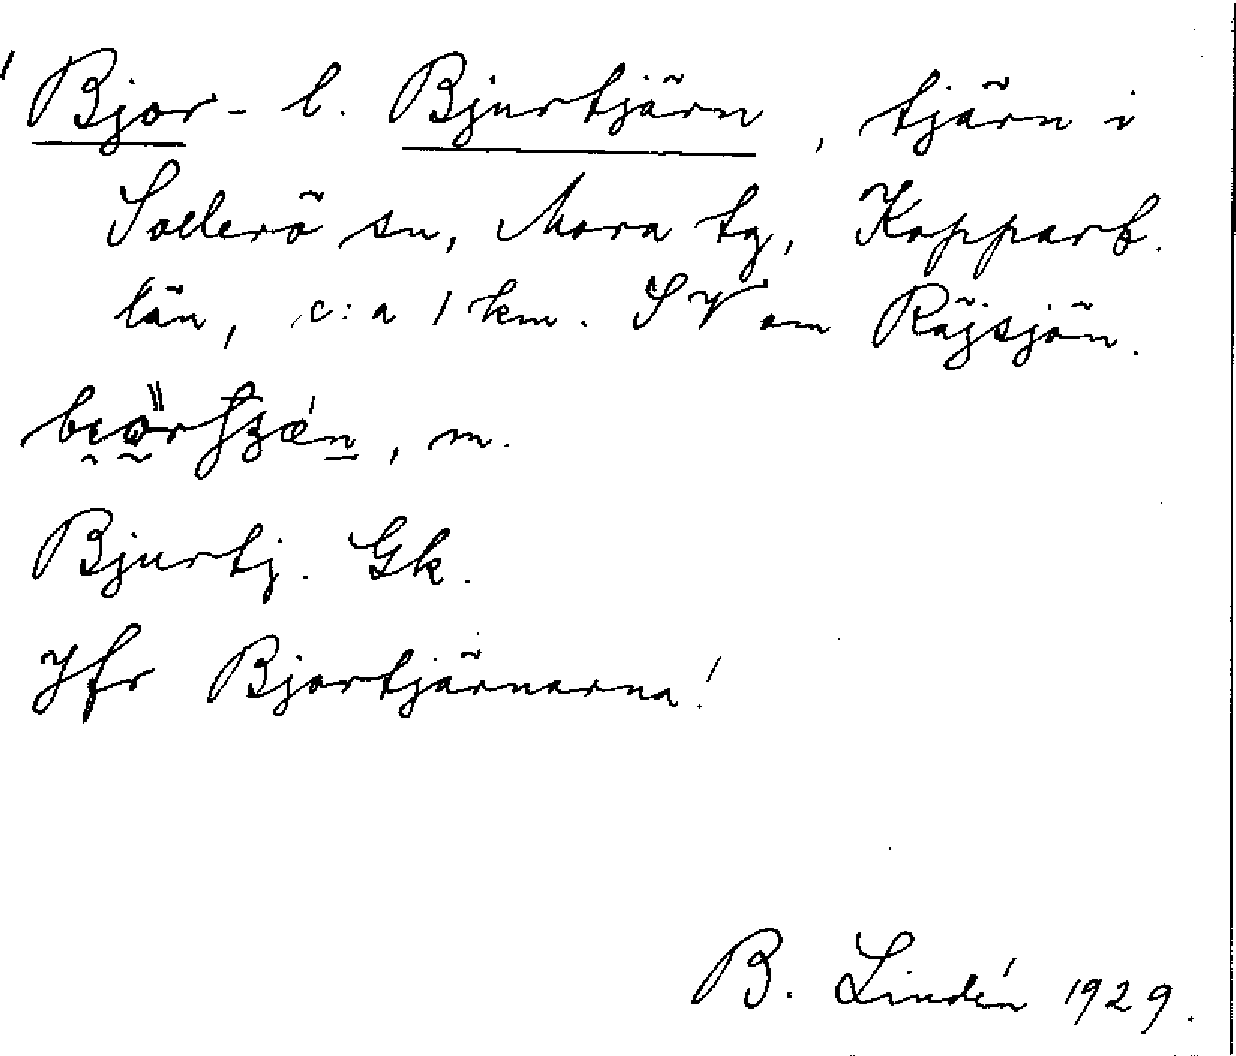 Bjor- l. Bjurtjärn, tjärn i
Sollerö sn, Mora tg, Kopparb.
län, c:a 1 km. SV om Röjsjön.
, m.
Bjurtj. Gk.
Jfr Bjortjärnarna!
B. Lindén 1929.